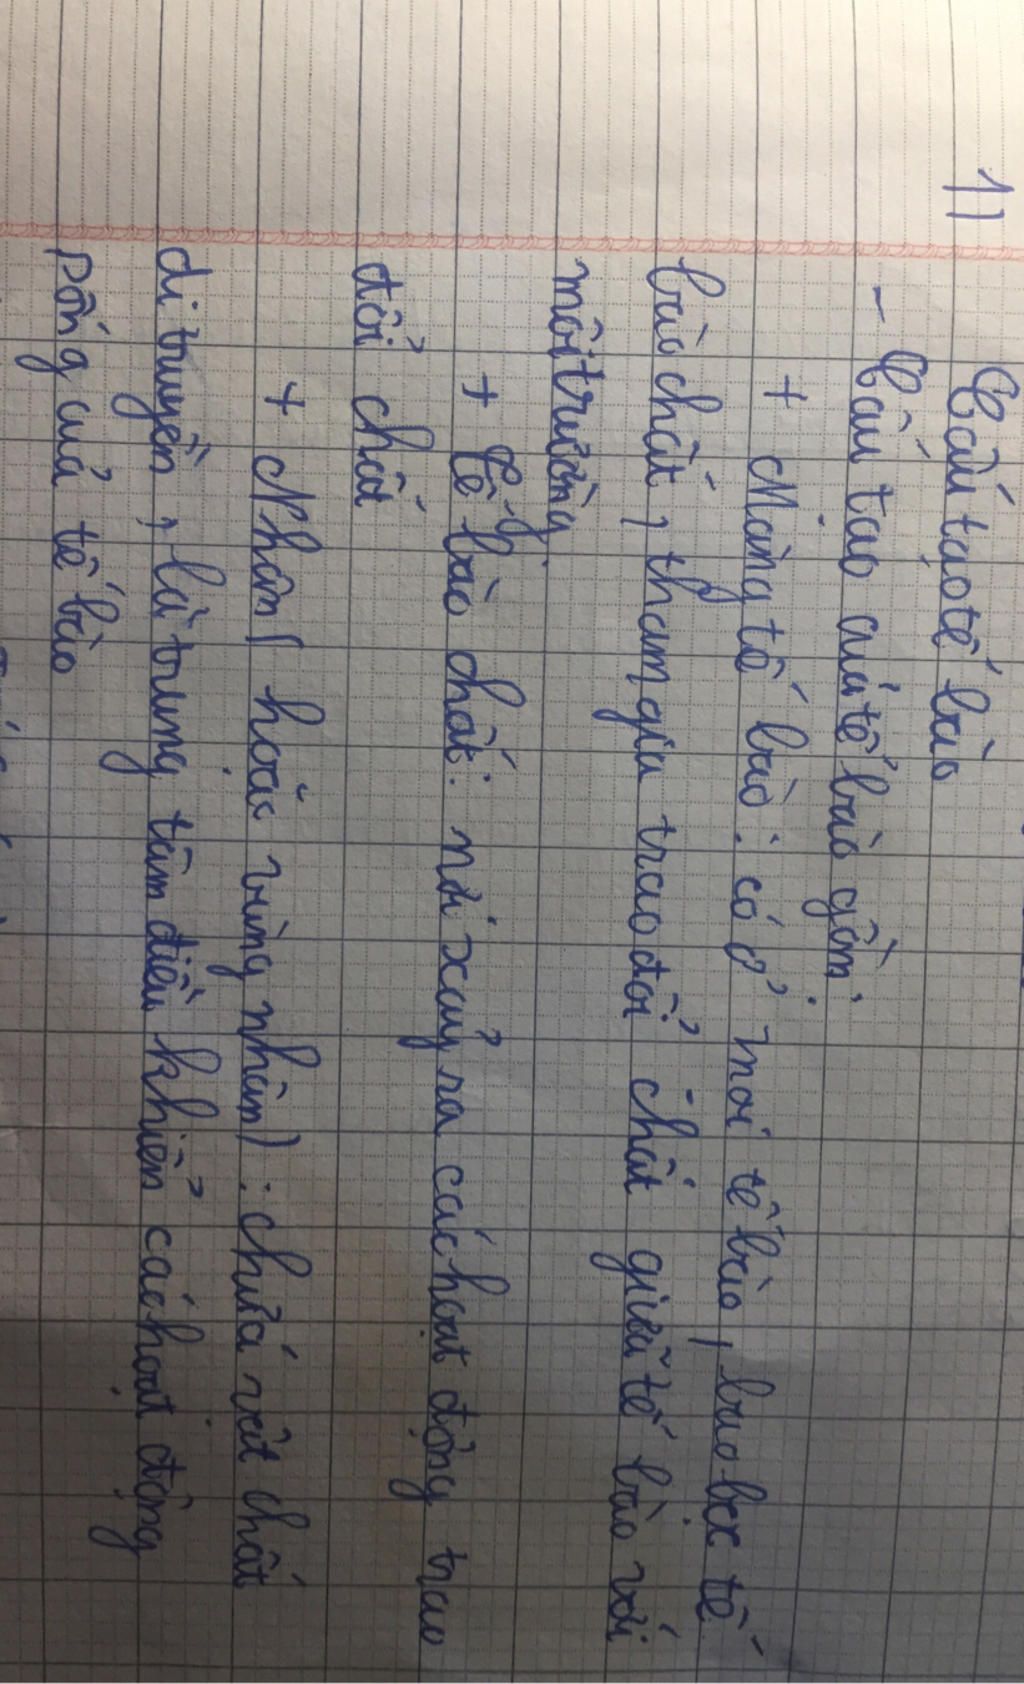 1) Cấu tạo tế bào
- Cấu tạo của tế bào gồm:
+ Màng tế bào: có ở mọi tế bào, bao bọc tế
bào chất, tham gia trao đổi chất giữa tế bào với
môi trường
+ Tế bào chất: nơi xảy ra các hoạt động trao
đổi chất
+ Nhân (hoặc vùng nhân): chứa vật chất
di truyền, là trung tâm điều khiển các hoạt động
sống của tế bào